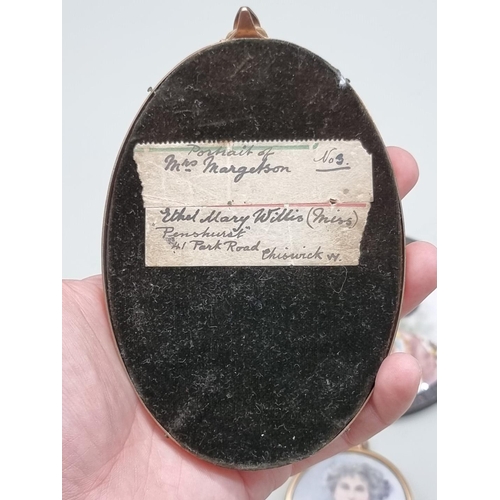 Portrait of
Mrs Margetson No 3.
Ethel Mary Willis (Miss)
"Penshurst"
41 Park Road
Chiswick W.